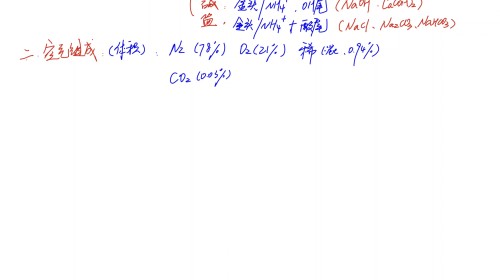 碱：金头/NH₄⁺，OH尾（NaOH、Ca(OH)₂）
盐：金头/NH₄⁺＋酸尾（NaCl、Na₂CO₃、NaHCO₃）
二.空气组成：(体积)：N₂(78%) O₂(21%) 稀(混.0.94%)
CO₂(0.03%)